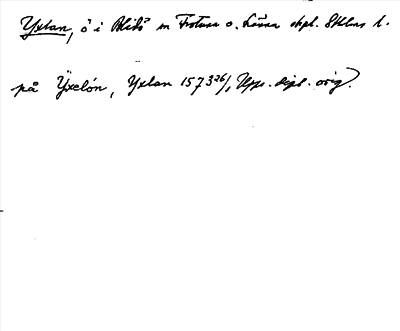 Yxlan, ö i Blidö sn Frötuna o. Länna skpl. Sthlms l.
på Yxelön, Yxlan 1573 26/1 Upps. dipl. orig.